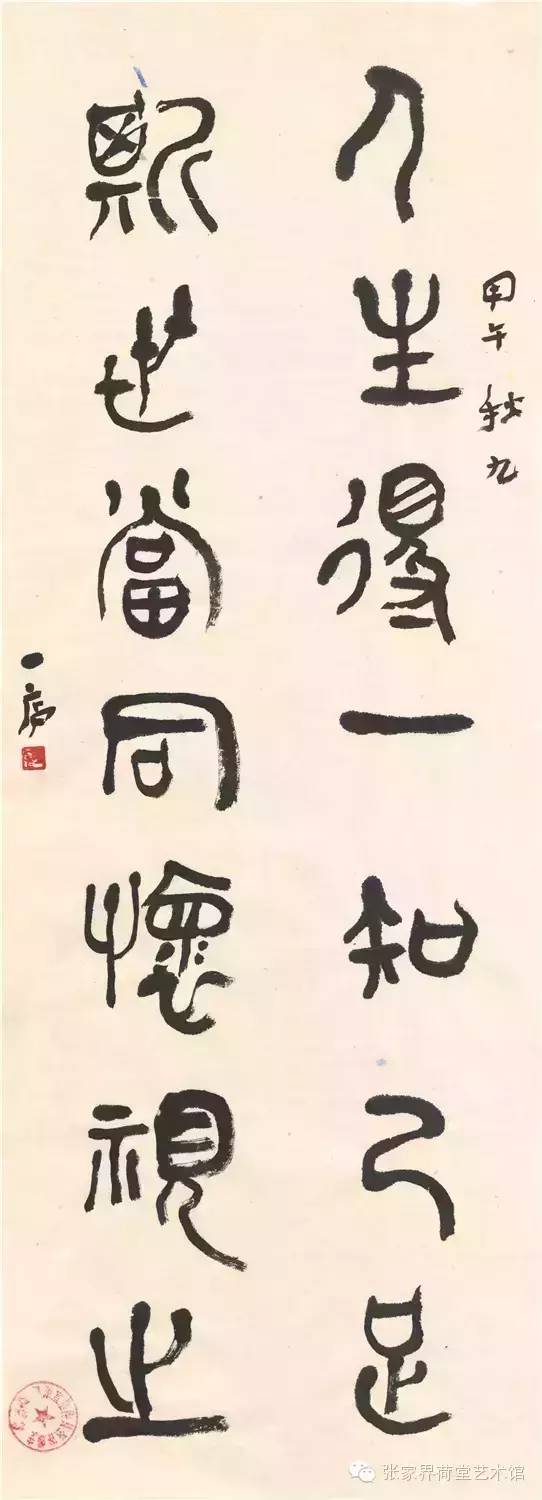 甲午秋九
人生得一知己足
斯世當同懷視之
张家界荷堂艺术馆